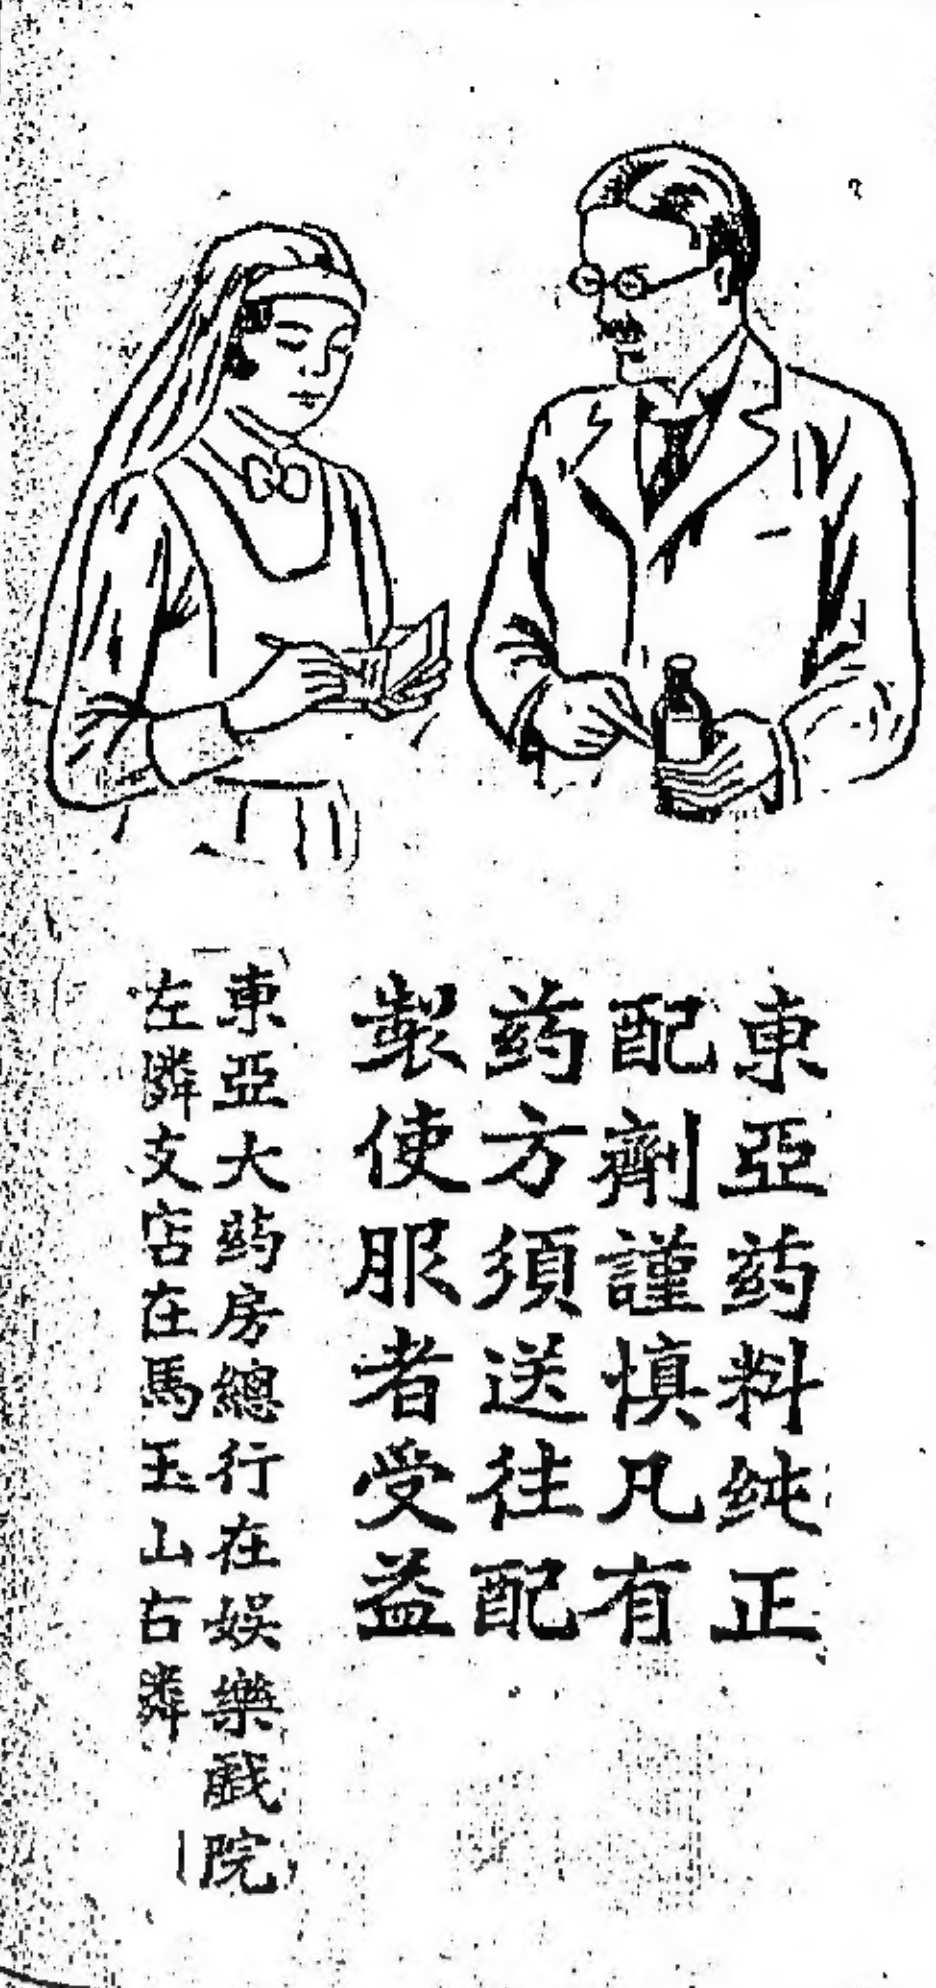 東亞药料纯正
配劑謹慎凡有
药方須送往配
製使服者受益
東亞大药房總行在娛樂戲院
左隣支店在馬玉山右隣